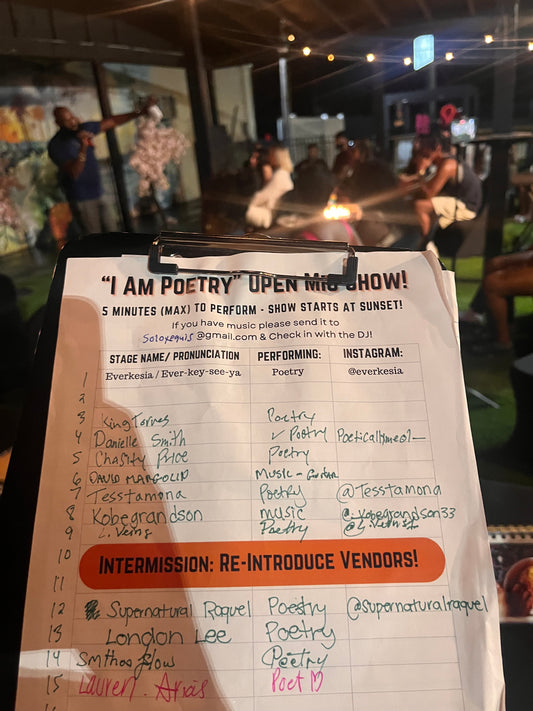 "I AM POETRY" OPEN MIC SHOW!
5 MINUTES (MAX) TO PERFORM - SHOW STARTS AT SUNSET!
If you have music please send it to
@gmail.com & Check in with the DJ!
STAGE NAME/ PRONUNCIATION PERFORMING: INSTAGRAM:
1 Everkesia / Ever-key-see-ya Poetry @everkesia
2
3 King Torres Poetry
4 Danielle Smith ✓ Poetry
5 Chasity Price Poetry
6 DAVID MANGOLID Music - Guitar
7 Tesstamona Poetry @Tesstamona
8 Kobegrandson music @.kobegrandson33
9 L. Veins Poetry
10 INTERMISSION: RE-INTRODUCE VENDORS!
11
12 Supernatural Raquel Poetry @supernaturalraquel
13 London Lee Poetry
14 Poetry
15 Lauren. Arias Poet ♡